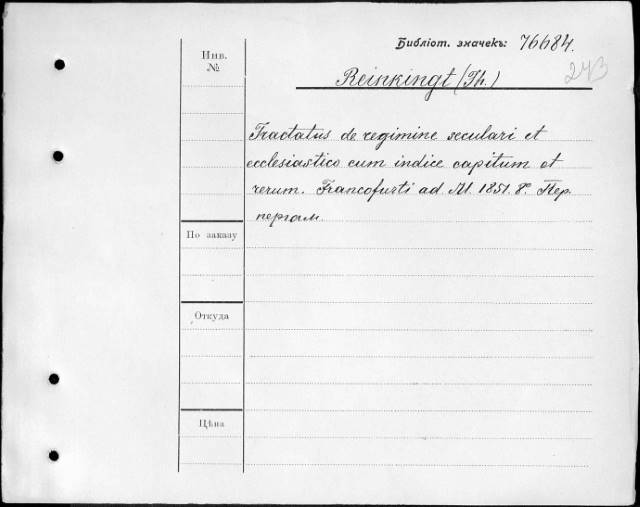 Библіот. значекъ: 76684.
243
Инв.
№
Reinkingt (Th.)
Tractatus de regimine seculari et
ecclesiastico cum indice capitum et
rerum. Francofurti ad M. 1851. 8º. Пер.
пергам.
По заказу
Откуда
Цѣна